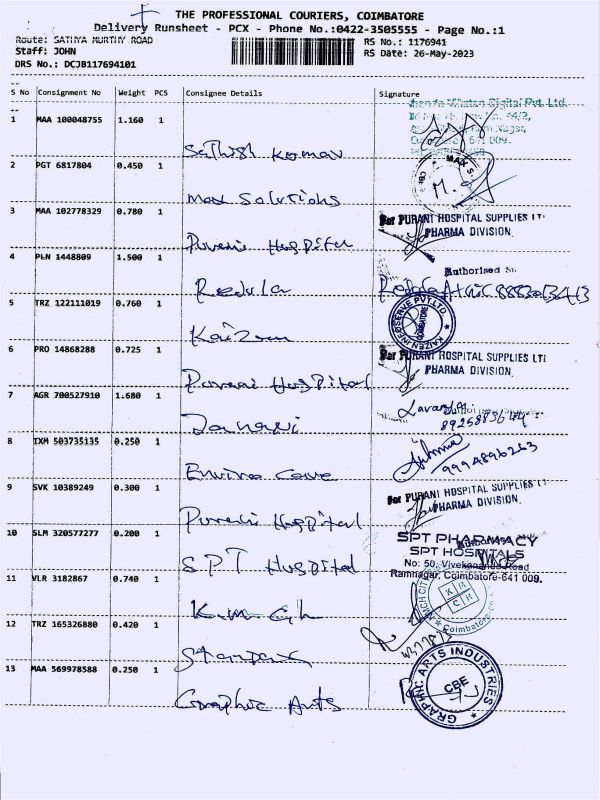 THE PROFESSIONAL COURIERS, COIMBATORE
Delivery Runsheet - PCX - Phone No.:0422-3505555 - Page No.:1
Route: SATHYA MURTHY ROAD
RS No.: 1176941
Staff: JOHN
RS Date: 26-May-2023
DRS No.: DCJB117694101
S No Consignment No Weight PCS Consignee Details Signature
1 MAA 100048755 1.160 1
Sathish Kumar
641 009.
2 PGT 6817804 0.450 1
Max Solutions
MAX S
M.
3 MAA 102778329 0.780 1
Purani Hospital
For PURANI HOSPITAL SUPPLIES LT
PHARMA DIVISION.
4 PLN 1448809 1.500 1
Redula
Authorised
5 TRZ 122111019 0.760 1
Kaizen
KAIZEN INFOSERVE PVT.LTD
COIMBATORE
6 PRO 14868288 0.725 1
Purani Hospital
For PURANI HOSPITAL SUPPLIES LT
PHARMA DIVISION.
7 AGR 700527910 1.680 1
Lavanya
8 IXM 503735135 0.250 1
Enviro Care
9994896263
9 SVK 10389249 0.300 1
Purani Hospital
For PURANI HOSPITAL SUPPLIES LT
PHARMA DIVISION.
10 SLM 320577277 0.200 1
S.P.T Hospital
SPT PHARMACY
SPT HOSPITALS
No: 50, Vivekananda Road
Ramnagar, Coimbatore-641 009.
11 VLR 3182867 0.740 1
KMCH
KMCH CITY
Coimbatore
12 TRZ 165326880 0.420 1
13 MAA 569978588 0.250 1
Graphic Arts
GRAPHIC ARTS INDUSTRIES
CBE